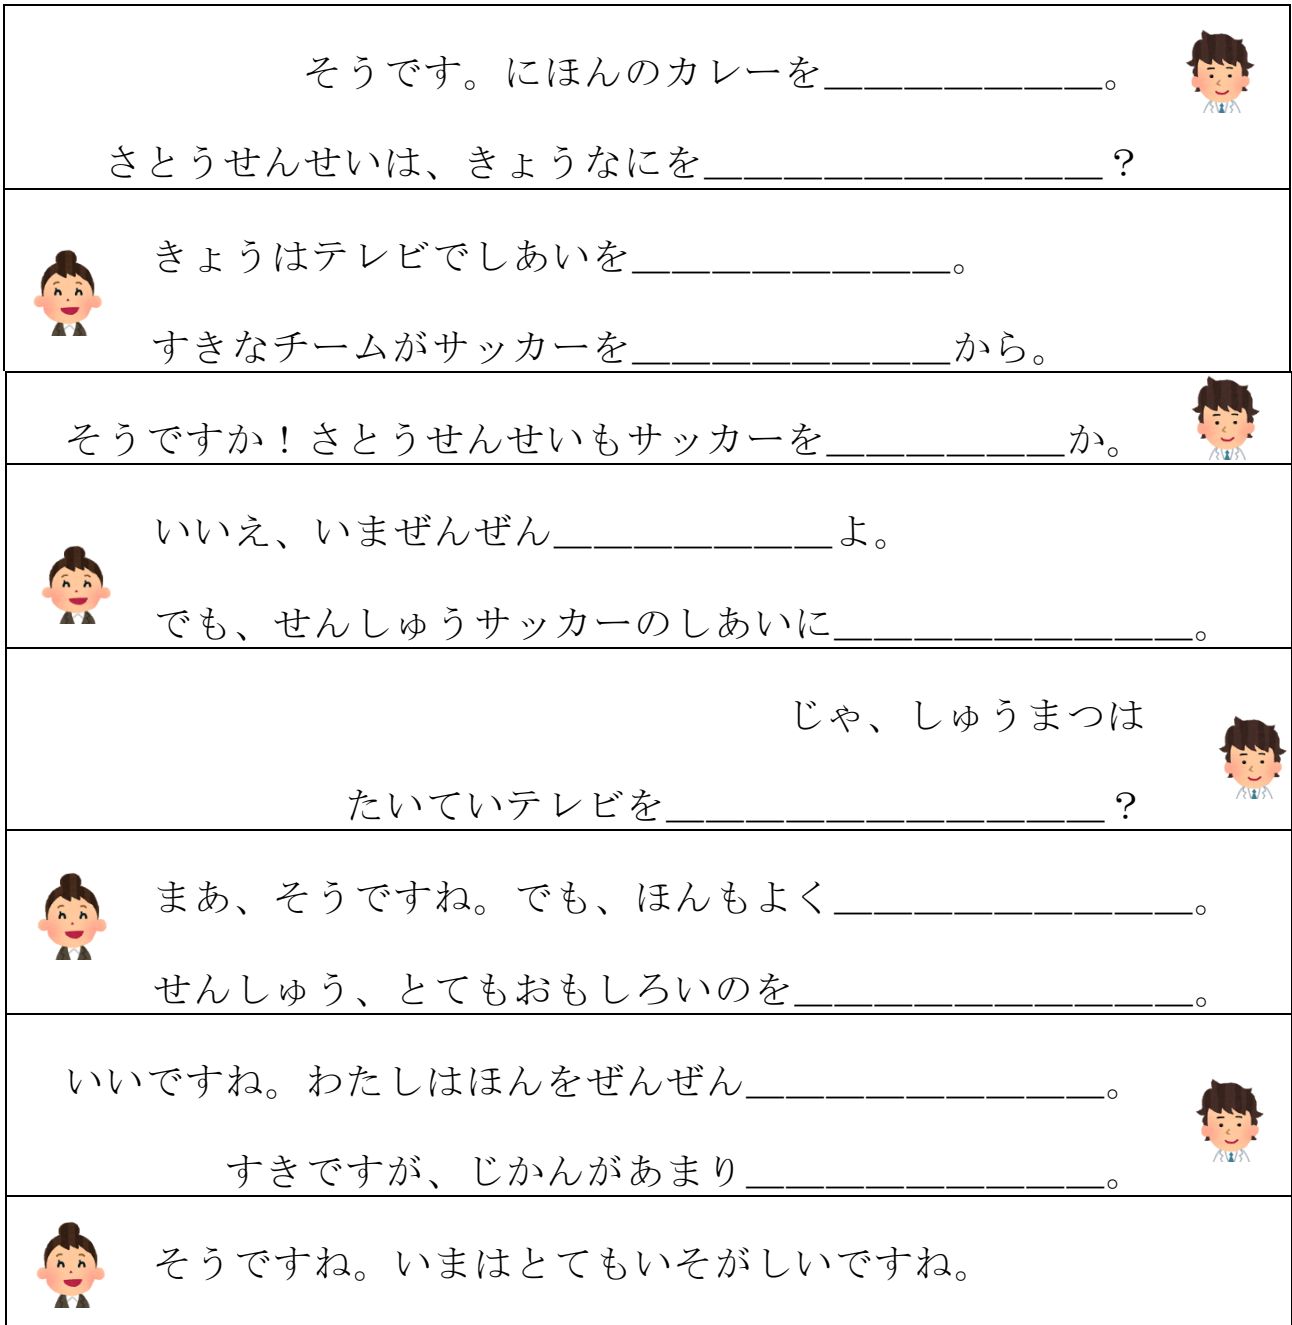 そうです。にほんのカレーを＿＿＿＿＿＿＿。
さとうせんせいは、きょうなにを＿＿＿＿＿＿＿＿＿＿？
きょうはテレビでしあいを＿＿＿＿＿＿＿＿。
すきなチームがサッカーを＿＿＿＿＿＿＿＿から。
そうですか！さとうせんせいもサッカーを＿＿＿＿＿＿か。
いいえ、いまぜんぜん＿＿＿＿＿＿＿よ。
でも、せんしゅうサッカーのしあいに＿＿＿＿＿＿＿＿＿。
じゃ、しゅうまつは
たいていテレビを＿＿＿＿＿＿＿＿＿＿＿？
まあ、そうですね。でも、ほんもよく＿＿＿＿＿＿＿＿＿。
せんしゅう、とてもおもしろいのを＿＿＿＿＿＿＿＿＿＿。
いいですね。わたしはほんをぜんぜん＿＿＿＿＿＿＿＿＿。
すきですが、じかんがあまり＿＿＿＿＿＿＿＿＿。
そうですね。いまはとてもいそがしいですね。